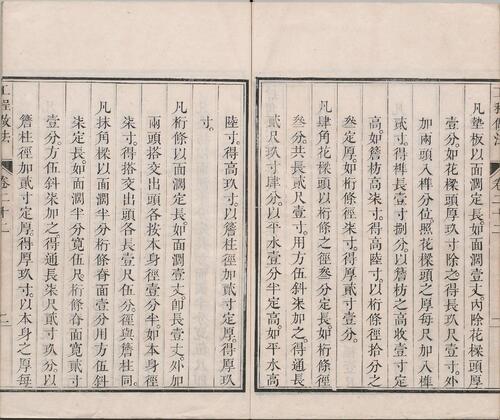 凡墊板以面濶定長如面濶壹丈內除花樑頭厚
壹分如花樑頭厚玖寸除之得長玖尺壹寸外
加兩頭入榫分位照花樑頭之厚每尺加入榫
貳寸得榫長壹寸捌分以簷枋之高收壹寸定
高如簷枋高柒寸得高陸寸以桁條徑拾分之
叁定厚如桁條徑柒寸得厚貳寸壹分
凡肆角花樑頭以桁條之徑叁分定長如桁條徑
叁分共長貳尺壹寸用方伍斜柒加之得通長
貳尺玖寸肆分以平水壹分半定高如平水高
陸寸得高玖寸以簷柱徑加貳寸定厚得厚玖
寸
凡桁條以面濶定長如面濶壹丈卽長壹丈外加
兩頭搭交出頭各按本身徑壹分半如本身徑
柒寸得搭交出頭各長壹尺伍分徑與簷柱同
凡抹角樑以面濶半分桁條脊面壹分用方伍斜
柒定長如面濶半分寬伍尺桁條脊面寬貳寸
壹分方伍斜柒加之得通長柒尺貳寸玖分以
簷柱徑加貳寸定厚得厚玖寸以本身之厚每
工程做法
卷二十二
二